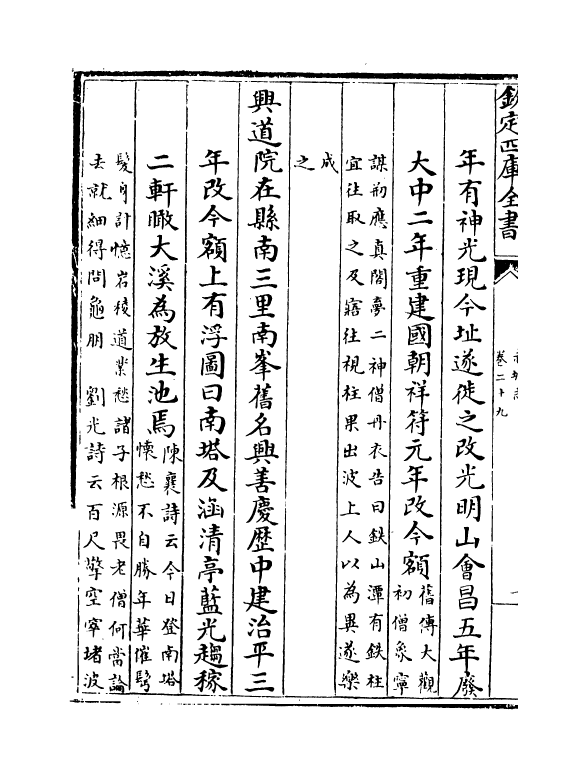 欽定四庫全書
卷二十九
年有神光現今址遂徙之改光明山會昌五年廢
大中二年重建國朝祥符元年改今額舊傳大觀
初僧象寧
謀朔應真閣夢二神僧丹衣告曰鉄山潭有鉄柱
宜往取之及寤往視柱果出波上人以為異遂樂
成
之
興道院在縣南三里南峯舊名興善慶歷中建治平三
年改今額上有浮圖曰南塔及涵清亭藍光趨稼
二軒瞰大溪為放生池焉陳襄詩云今日登南塔
懷愁不自勝年華催鬢
髮身計憶岩稜道業愁諸子根源畏老僧何當論
去就細得問龜朋 劉光詩云百尺擎空窣堵波